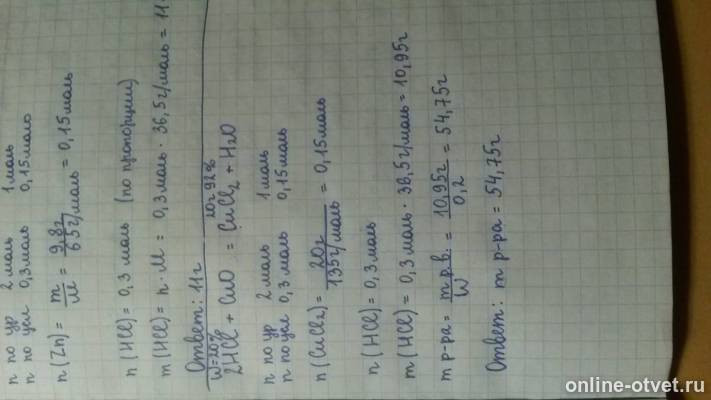 n по ур 2 моль 1 моль
n по усл 0,3 моль 0,15 моль
n (Zn) = m/M = 9,8г/65г/моль = 0,15 моль
n (HCl) = 0,3 моль (по пропорции)
m (HCl) = n · M = 0,3 моль · 36,5 г/моль = 11
Ответ: 11г
W=20% 20г 92%
2HCl + CuO = CuCl2 + H2O
n по ур 2 моль 1 моль
n по усл 0,3 моль 0,15 моль
n (CuCl2) = 20г/135г/моль = 0,15 моль
n (HCl) = 0,3 моль
m (HCl) = 0,3 моль · 36,5г/моль = 10,95г
m р-ра = m р.в./W = 10,95г/0,2 = 54,75г
Ответ: m р-ра = 54,75г
online-otvet.ru